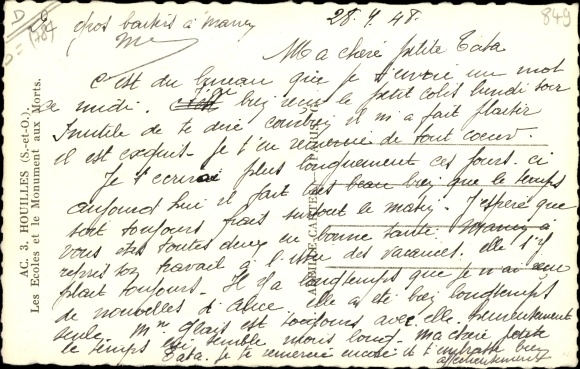 gros baisers à Mamy
28.9.48.
849
Ma chère petite Tata
C'est du bureau que je t'envoie un mot
ce midi. J'ai bien reçu le petit colis lundi soir
Inutile de te dire combien il m'a fait plaisir
il est exquis. Je t'en remercie de tout coeur.
Je t'écrirai plus longuement ces jours. ci
aujourd'hui il fait très beau bien que le temps
soit toujours frais surtout le matin. J'espère que
vous êtes toutes deux en bonne santé.
repris son travail à l' des vacances. elle s'y
plait toujours. Il y a longtemps que je n'ai eu
de nouvelles d'Alice. elle a été bien longtemps
seule. Mme est toujours avec elle heureusement
le temps lui semble moins long. Ma chère petite
Tata. je te remercie encore et t'embrasse bien
affectueusement
AC. 3. HOUILLES (S.-et-O.).
Les Ecoles et le Monument aux Morts.